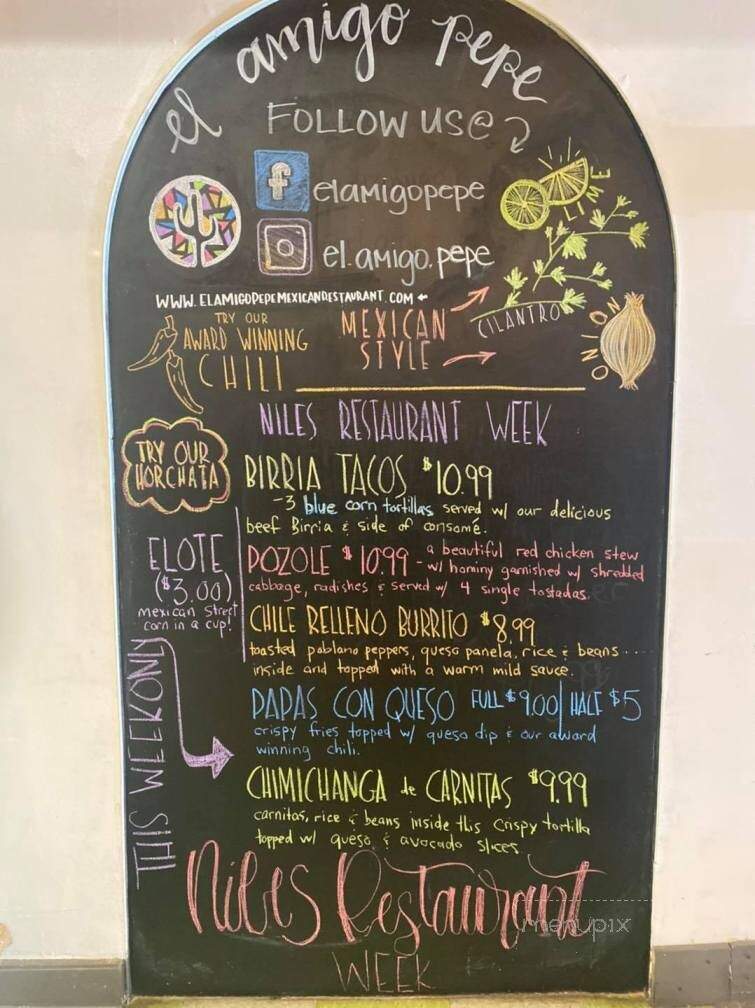 el amigo pepe
FOLLOW US@
f elamigopepe
el.amigo.pepe
LIME
WWW.ELAMIGOPEPEMEXICANRESTAURANT.COM
TRY OUR
AWARD WINNING
CHILI
MEXICAN
STYLE
CILANTRO
ONION
NILES RESTAURANT WEEK
TRY OUR
HORCHATA
BIRRIA TACOS $10.99
-3 blue corn tortillas served w/ our delicious
beef Birria & side of consomé.
ELOTE
($3.00)
mexican street
corn in a cup!
POZOLE $10.99 - a beautiful red chicken stew
- w/ hominy garnished w/ shredded
cabbage, radishes & served w/ 4 single tostadas
CHILE RELLENO BURRITO $8.99
toasted poblano peppers, queso panela, rice & beans....
inside and topped with a warm mild sauce.
THIS WEEK ONLY
PAPAS CON QUESO FULL $9.00| HALF $5
crispy fries topped w/ queso dip & our award
winning chili.
CHIMICHANGA de CARNITAS $9.99
carnitas, rice & beans inside this crispy tortilla
topped w/ queso & avocado slices
Niles Restaurant
WEEK
menupix